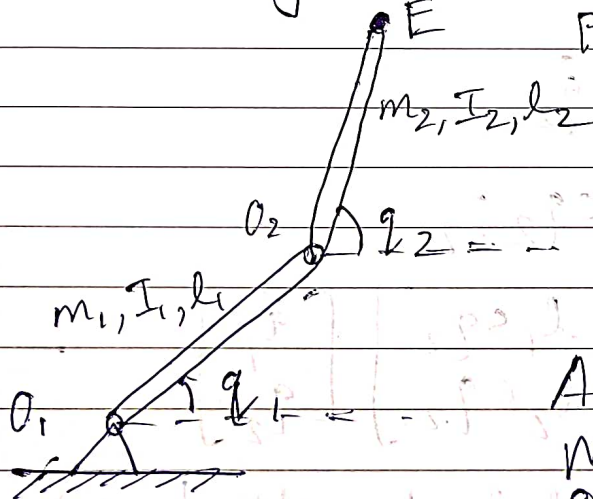 E
m2, I2, l2
O2
q2
m1, I1, l1
q1
O1
A